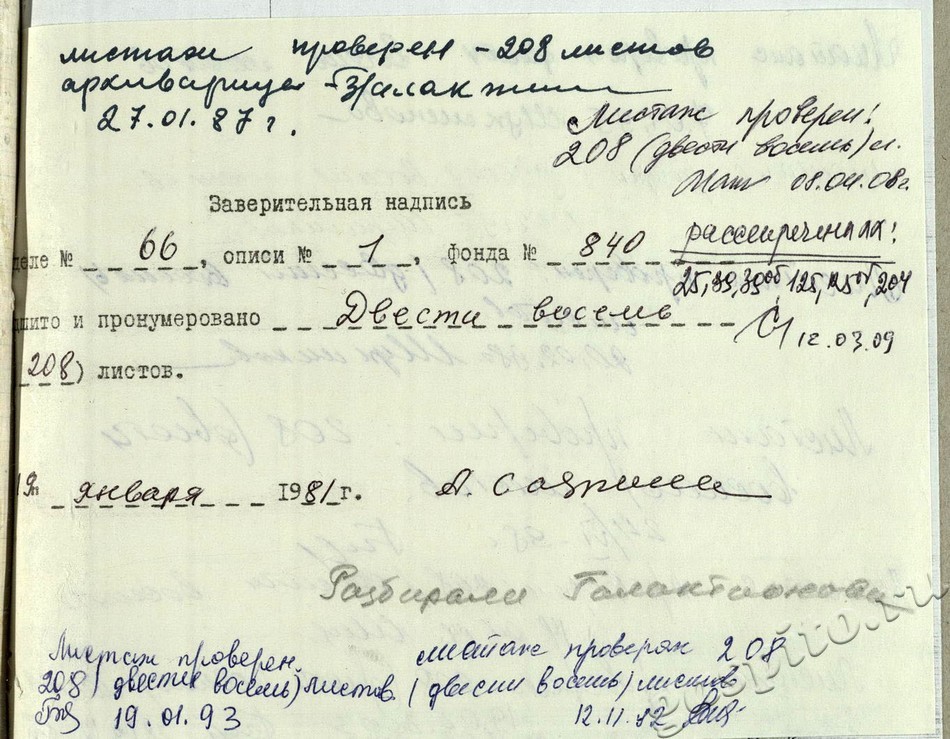 листаж проверен - 208 листов
архивариус
27.01.87 г.
Листаж проверен!
208 (двести восемь) л.
08.04.08г.
Заверительная надпись
деле № 66, описи № 1, фонда № 840
25, 39, 39об, 125, 125об, 204
12.03.09
шито и пронумеровано Двести восемь
208) листов.
января 1981 г.
Разбирали Галактионова
Листаж проверен.
208 (двести восемь) листов.
19.01.93
листаж проверен 208
(двести восемь) листов
12.11.92